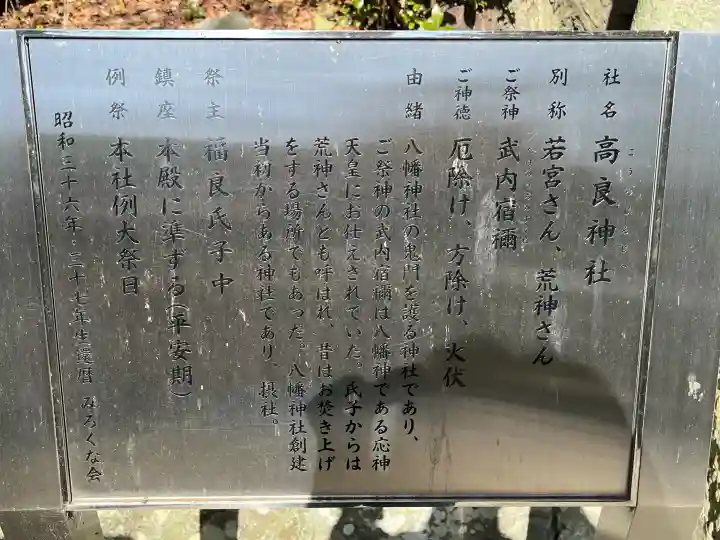 社名 高良神社
別称 若宮さん、荒神さん
ご祭神 武内宿禰
ご神徳 厄除け、方除け、火伏
由緒 八幡神社の鬼門を護る神社であり、
ご祭神の武内宿禰は八幡神である応神
天皇にお仕えされていた。氏子からは
荒神さんとも呼ばれ、昔はお焚き上げ
をする場所でもあった。八幡神社創建
当初からある神社であり、摂社。
祭主 福良氏子中
鎮座 本殿に準ずる(平安期)
例祭 本社例大祭日
昭和三十六年・三十七年生還暦 みろくな会